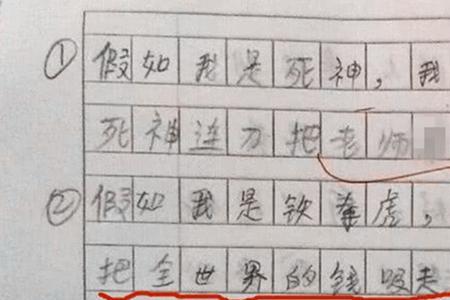 ① 假如我是死神，我
死神连刀把老师
② 假如我是铁拳虎，
把全世界的钱吸走